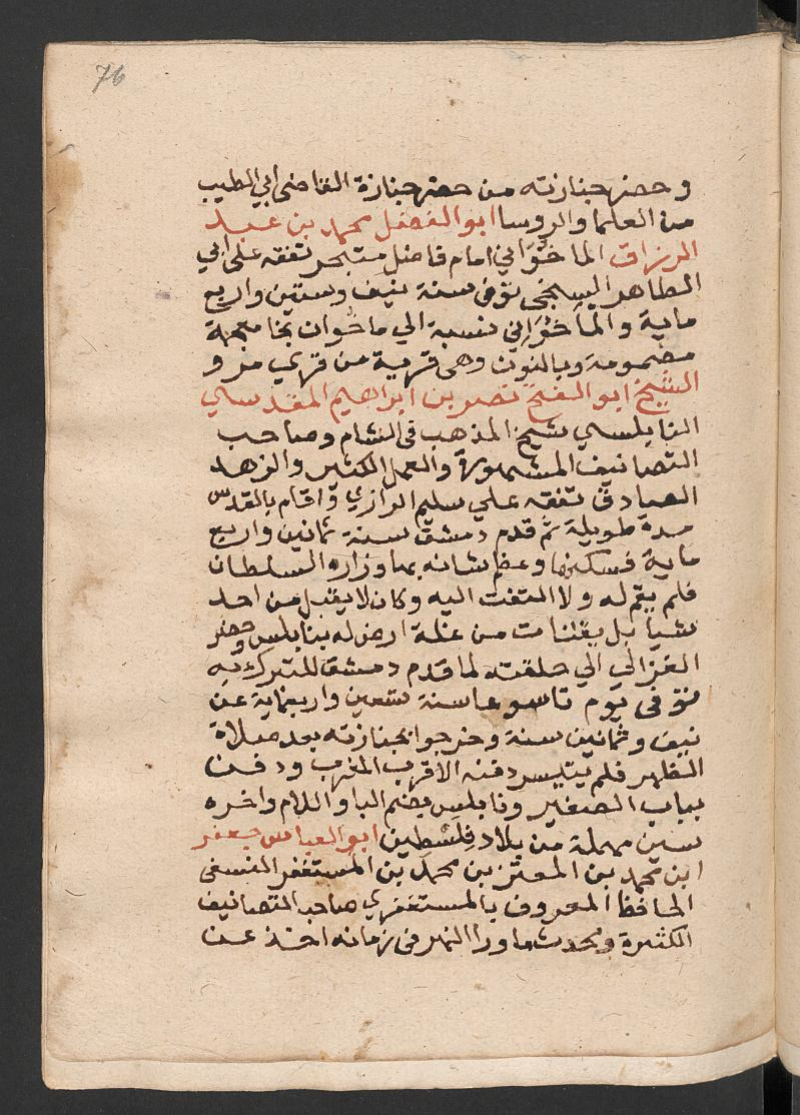 76
وحضر جنازته من حضر جنازة القاضى ابي الطيب
من العلما والروسا ابو الفضل محمد بن عبد
الرزاق الماخواني امام فاضل متبحر تفقه على ابي
الطاهر السنجى توفى سنة نيف وستين واربع
ماية والماخواني نسبة الي ماخوان بخا معجمة
مضمومة وبالنون وهى قرية من قري مرو
الشيخ ابو الفتح نصر بن ابراهيم المقدسي
النابلسي شيخ المذهب فى الشام وصاحب
التصانيف المشهورة والعمل الكثير والزهد
الصادق تفقه علي سليم الرازي واقام بالقدس
مدة طويلة ثم قدم دمشق سنة ثمانين واربع
ماية فسكنها وعظم شانه بها وزاره السلطان
فلم يقم له ولا التفت اليه وكان لا يقبل من احد
شيا بل يقتات من غلة ارض له بنابلس وحضر
الغزالي الي حلقته لما قدم دمشق للتبرك به
توفى يوم تاسوعا سنة تسعين واربعماية عن
نيف وثمانين سنة وخرجوا بجنازته بعد صلاة
الظهر فلم يتيسر دفنه الا قرب المغرب ودفن
بباب الصغير ونابلس بضم البا واللام واخره
سين مهملة من بلاد فلسطين ابو العباس جعفر
ابن محمد بن المعتز بن محمد بن المستغفر النسفى
الحافظ المعروف بالمستغفري صاحب التصانيف
الكثيرة ومحدث ما ورا النهر فى زمانه اخذ عن